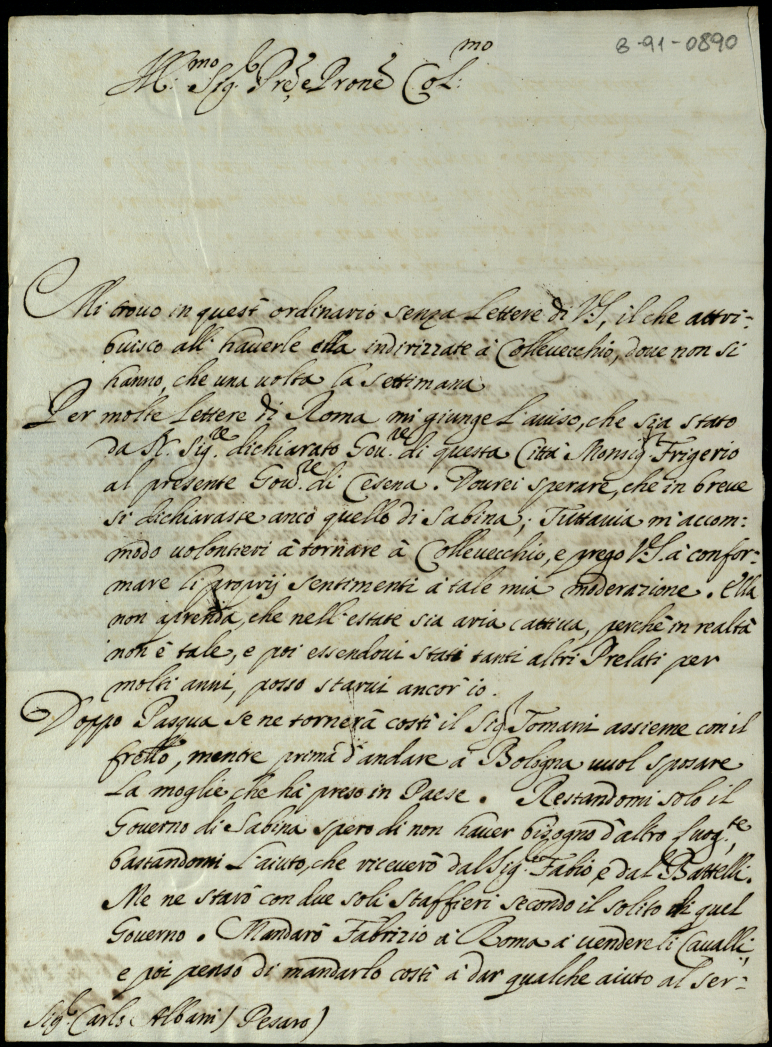 B-91-0890
Ill.mo Sig.r P͞re, e P͞rone Col.mo
Mi trovo in quest' ordinario senza Lettere di V.S, il che attri-
buisco all' haverle ella indirizzate à Collevecchio, dove non si
hanno, che una volta la settimana
Per molte Lettere di Roma mi giunge l'aviso, che sia stato
da N. Sig.re dichiarato Gov.re di questa Città Monsig.r Frigerio
al presente Gov.re di Cesena. Dourei sperare, che in breve
si dichiarasse anco quello di Sabina; Tuttavia m'accom-
modo volontieri à tornare à Collevecchio, e prego V.S. à confor-
mare li proprij sentimenti à tale mia moderazione. Ella
non aprenda, che nell'estate sia aria cattiva, perche in realtà
non è tale, e poi essendovi stati tanti altri Prelati per
molti anni, posso starvi ancor'io.
Doppo Pasqua se ne tornerà costì il Sig.r Tomani assieme con il
frello, mentre prima d'andare à Bologna vuol sposare
la moglie che hà preso in Paese. Restandomi solo il
Governo di Sabina spero di non haver bisogno d'altro
bastandomi l'aiuto, che riceverò dal Sig.r Fabio, e dal Battelli.
Me ne starò con due soli Staffieri secondo il solito di quel
Governo. Mandarò Fabrizio à Roma à vendere li Cavalli,
e poi penso di mandarlo costì à dar qualche aiuto al Ser-
Sig.r Carlo Albani / Pesaro)